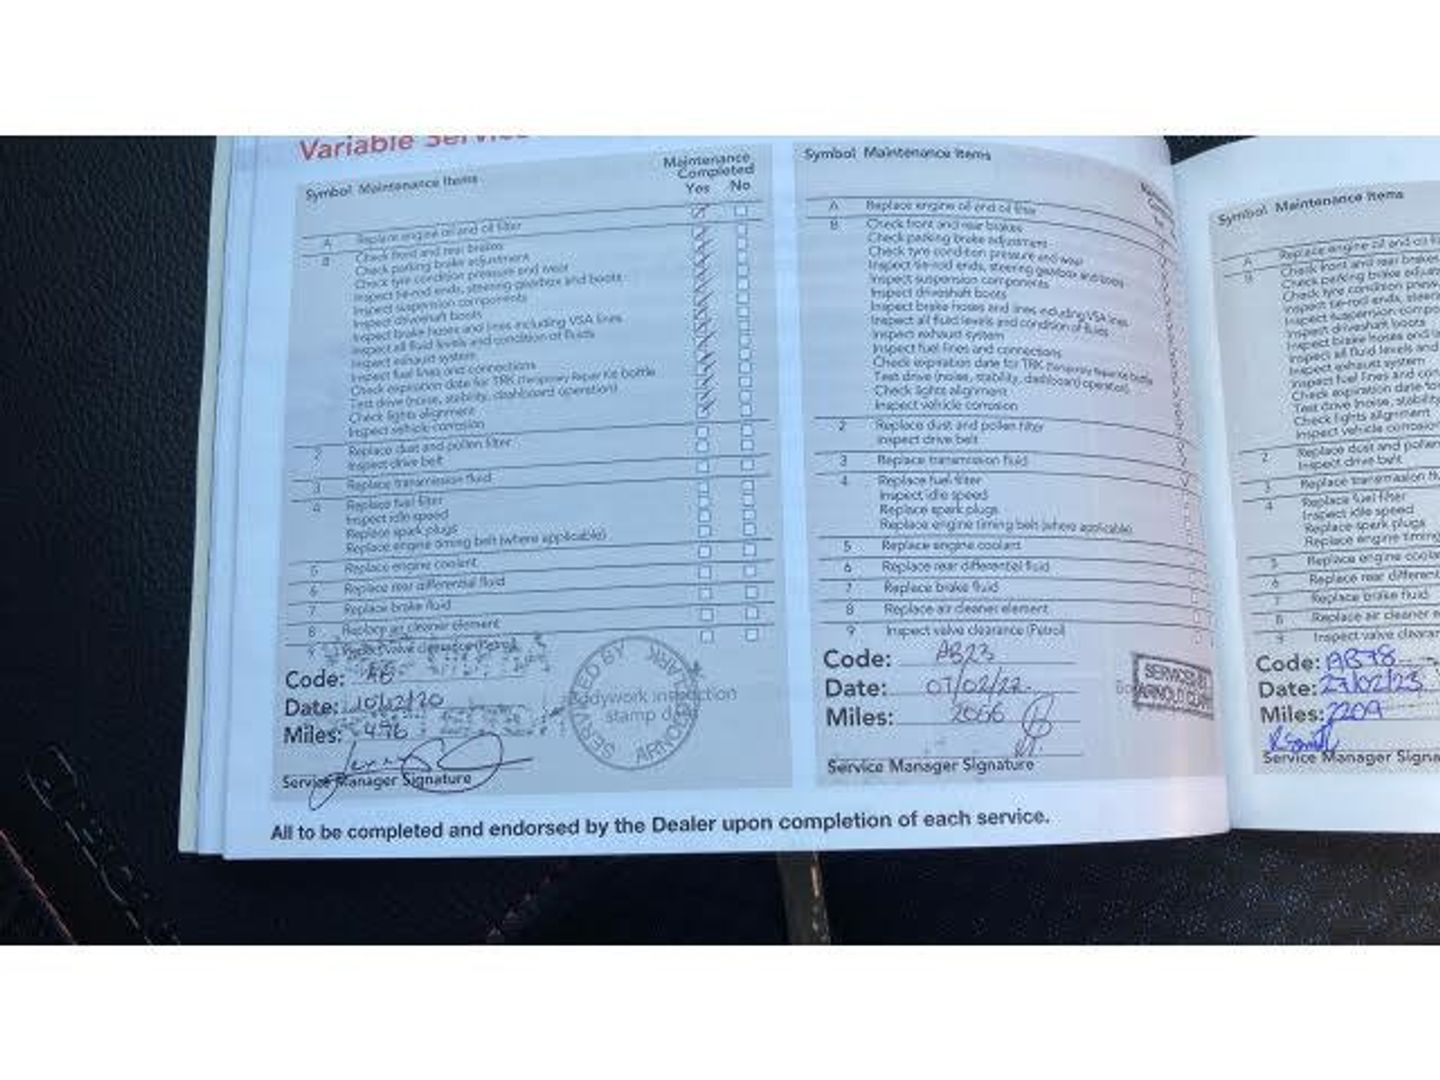 Variable Service
Symbol Maintenance Items
Maintenance
Completed
Yes No
A Replace engine oil and oil filter
B Check front and rear brakes
Check parking brake adjustment
Check tyre condition pressure and wear
Inspect tie-rod ends, steering gearbox and boots
Inspect suspension components
Inspect driveshaft boots
Inspect brake hoses and lines including VSA lines
Inspect all fluid levels and condition of fluids
Inspect exhaust system
Inspect fuel lines and connections
Check expiration date for TRK (Temporary Repair Kit) bottle
Test drive (noise, stability, dashboard operation)
Check lights alignment
Inspect vehicle corrosion
2 Replace dust and pollen filter
Inspect drive belt
3 Replace transmission fluid
4 Replace fuel filter
Inspect idle speed
Replace spark plugs
Replace engine timing belt (where applicable)
5 Replace engine coolant
6 Replace rear differential fluid
7 Replace brake fluid
8 Replace air cleaner element
9 Inspect valve clearance (Petrol)
Code:
Date: 10/12/20
Miles: 496
Service Manager Signature
SERVICED BY ARNOLD CLARK
Bodywork inspection
stamp
Symbol Maintenance Items
A Replace engine oil and oil filter
B Check front and rear brakes
Check parking brake adjustment
Check tyre condition pressure and wear
Inspect tie-rod ends, steering gearbox and boots
Inspect suspension components
Inspect driveshaft boots
Inspect brake hoses and lines including VSA lines
Inspect all fluid levels and condition of fluids
Inspect exhaust system
Inspect fuel lines and connections
Check expiration date for TRK (Temporary Repair Kit) bottle
Test drive (noise, stability, dashboard operation)
Check lights alignment
Inspect vehicle corrosion
2 Replace dust and pollen filter
Inspect drive belt
3 Replace transmission fluid
4 Replace fuel filter
Inspect idle speed
Replace spark plugs
Replace engine timing belt (where applicable)
5 Replace engine coolant
6 Replace rear differential fluid
7 Replace brake fluid
8 Replace air cleaner element
9 Inspect valve clearance (Petrol)
Code: AB23
Date: 07/02/22
Miles: 2066
Service Manager Signature
SERVICED BY
ARNOLD CLARK
Symbol Maintenance Items
A Replace engine oil and oil
B Check front and rear brakes
Check parking brake
Check tyre condition
Inspect tie-rod ends,
Inspect suspension
Inspect driveshaft boots
Inspect brake hoses and
Inspect all fluid levels and
Inspect exhaust system
Inspect fuel lines and
Check expiration date
Test drive (noise,
Check lights alignment
Inspect vehicle corrosion
2 Replace dust and pollen
Inspect drive belt
3 Replace transmission
4 Replace fuel filter
Inspect idle speed
Replace spark plugs
Replace engine timing
5 Replace engine
6 Replace rear
7 Replace brake fluid
8 Replace air cleaner
9 Inspect valve
Code: AB78
Date: 27/02/23
Miles: 2209
Service Manager
All to be completed and endorsed by the Dealer upon completion of each service.